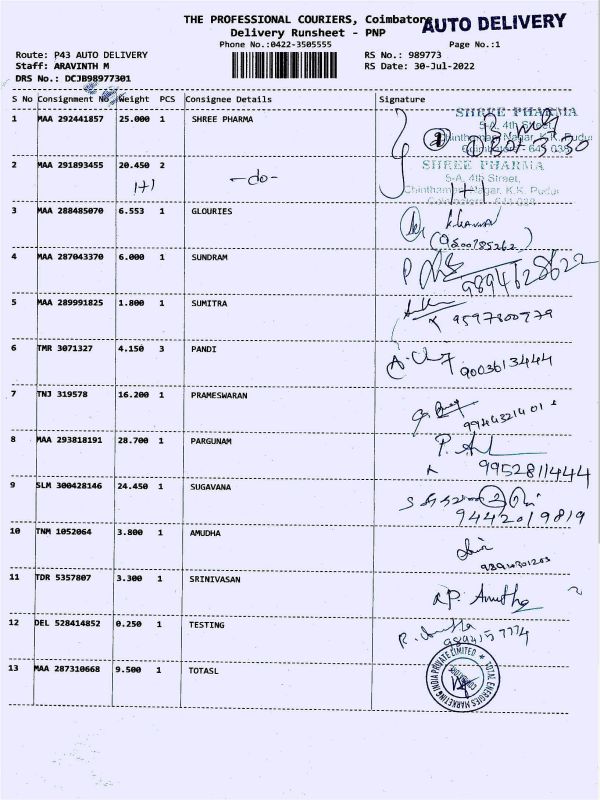 THE PROFESSIONAL COURIERS, Coimbatore
AUTO DELIVERY
Delivery Runsheet - PNP
Phone No.:0422-3505555
Page No.:1
Route: P43 AUTO DELIVERY
RS No.: 989773
Staff: ARAVINTH M
RS Date: 30-Jul-2022
DRS No.: DCJB98977301
S No Consignment No Weight PCS Consignee Details Signature
1 MAA 292441857 25.000 1 SHREE PHARMA
SHREE PHARMA
5-A, 4th Street,
Chinthamani Nagar, K.K. Pudur
Coimbatore - 641 038
2 MAA 291893455 20.450 2
1+1 -do- 1+1
SHREE PHARMA
5-A, 4th Street,
Chinthamani Nagar, K.K. Pudur
Coimbatore - 641 038
3 MAA 288485070 6.553 1 GLOURIES
4 MAA 287043370 6.000 1 SUNDRAM
9894628622
5 MAA 289991825 1.800 1 SUMITRA
9597800779
6 TMR 3071327 4.150 3 PANDI
9003613444
7 TNJ 319578 16.200 1 PRAMESWARAN
8 MAA 293818191 28.700 1 PARGUNAM
9952811444
9 SLM 300428146 24.450 1 SUGAVANA
9442019819
10 TNM 1052064 3.800 1 AMUDHA
11 TDR 5357807 3.300 1 SRINIVASAN
12 DEL 528414852 0.250 1 TESTING
9894157774
13 MAA 287310668 9.500 1 TOTASL
TOTAL ENERGIES MARKETING INDIA PRIVATE LIMITED
COIMBATORE